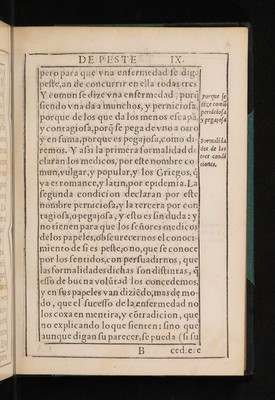 DE PESTE IX.
pero para que vna enfermedad se diga
peste, an de concurrir en ella todas tres
Y comun se dize vna enfermedad, porq̃
siendo vna da a munchos, y perniciosa,
porque de los que da los menos escapã,
y contagiosa, porq̃ se pega de vno a otro
y en suma, porque es pegajosa, como di-
remos. Y assi la primera formalidad de
claran los medicos, por este nombre co-
mun, vulgar, y popular, y los Griegos, q̃
ya es romance, y latin, por epidemia. La
segunda condicion declaran por este
nombre perniciosa, y la tercera por con
tagiosa, o pegajosa, y esto es sin duda: y
no tienen para que los señores medicos
de los papeles, obscurecernos el conoci-
miento de si es peste, o no, que se conoce
por los sentidos, con persuadirnos, que
las formalidades dichas son distintas, q̃
esso de buena volũtad los concedemos,
y en sus papeles van diziẽdo, mas de mo-
do, que el sucesso de la enfermedad no
los coxa en mentira, y cõtradicion, que
no explicando lo que sienten: sino que
aunque digan su parecer, se pueda (si su
B
porque se
dize comũ
perniciosa
y pegajosa
Formalida
des de las
tres condi
ciones.